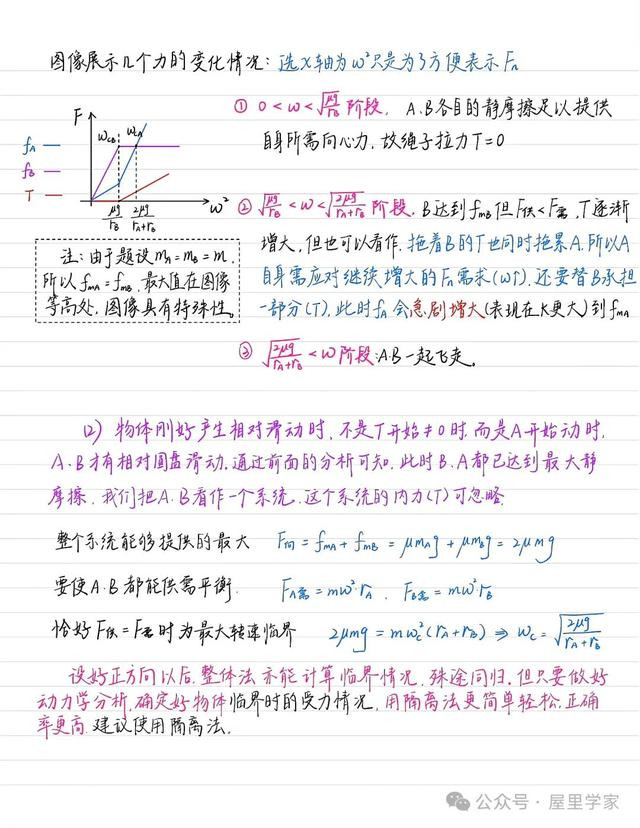 图像展示几个力的变化情况：选X轴为ω²只是为了方便表示Fn
F
fA
fB
T
ωCB
ωA
μg/rB
2μg/(rA+rB)
ω²
① 0<ω<√(μg/rB) 阶段，A.B各自的静摩擦足以提供
自身所需向心力，故绳子拉力T=0
② √(μg/rB)<ω<√(2μg/(rA+rB)) 阶段，B达到fmB但F供<F需，T逐渐
增大，但也可以看作，拖着B的T也同时拖累A，所以A
自身需应对继续增大的Fn需求(ω↑)，还要替B承担
一部分(T)，此时fA会急剧增大(表现在K更大)到fmA
③ √(2μg/(rA+rB))<ω阶段：A.B一起飞走。
注：由于题设mA=mB=m，
所以fmA=fmB，最大值在图像
等高处，图像具有特殊性。
(2) 物体刚好产生相对滑动时，不是T开始≠0时，而是A开始动时，
A.B才有相对圆盘滑动，通过前面的分析可知，此时B.A都已达到最大静
摩擦，我们把A.B看作一个系统，这个系统的内力(T)可忽略
整个系统能够提供的最大 F向=fmA+fmB=μmAg+μmBg=2μmg
要使A.B都能供需平衡， FA需=mω²·rA，FB需=mω²·rB
恰好F供=F需时为最大转速临界 2μmg=mωc²(rA+rB)⇒ωc=√(2μg/(rA+rB))
设好正方向以后，整体法亦能计算临界情况，殊途同归，但只要做好
动力学分析，确定好物体临界时的受力情况，用隔离法更简单轻松，正确
率更高，建议使用隔离法。
公众号·屋里学家